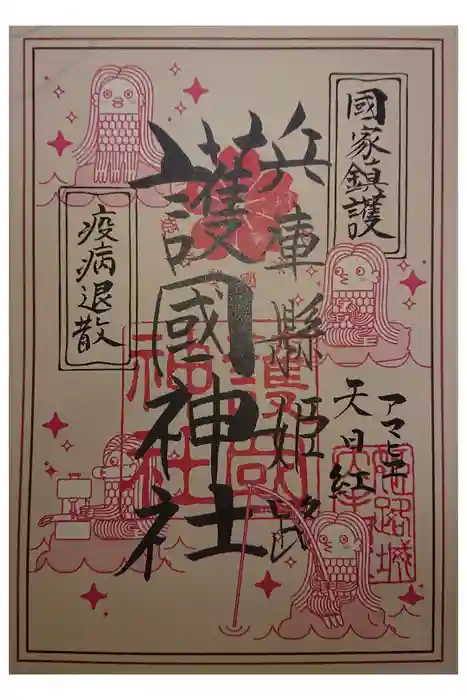 國家鎮護
兵庫縣姫路
護國神社
疫病退散
アマビエ
天日紅
護國
神社